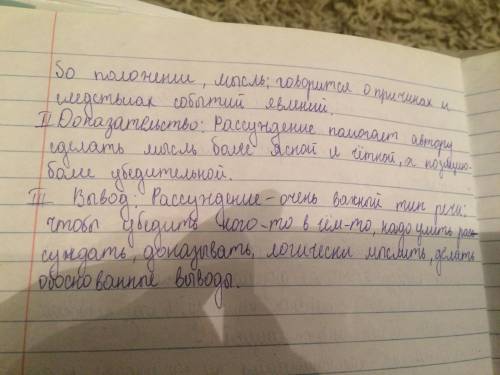 So положении, мысль; говорится о причинах и
следствиах событий явлений.
II Доказательство: Рассуждение помогает автору
сделать мысль более ясной и чёткой, а позицию-
боле убедительной.
III Вывод: Рассуждение - очень важный тип речи:
чтобы убедить кого-то в чём-то, надо уметь рас-
суждать, доказывать, логически мыслить, делать
обоснованные выводы.